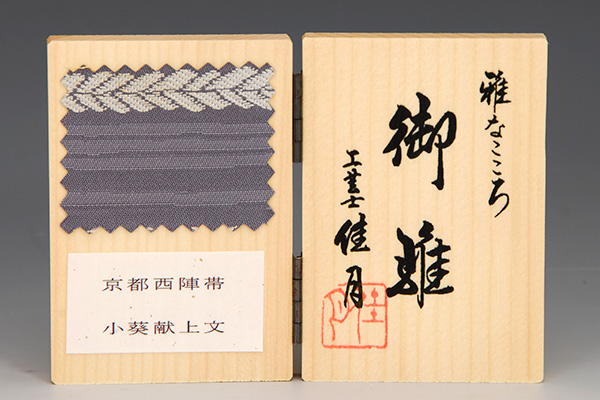 雅なこころ
御雛
工芸士 佳月
京都西陣帯
小葵献上文